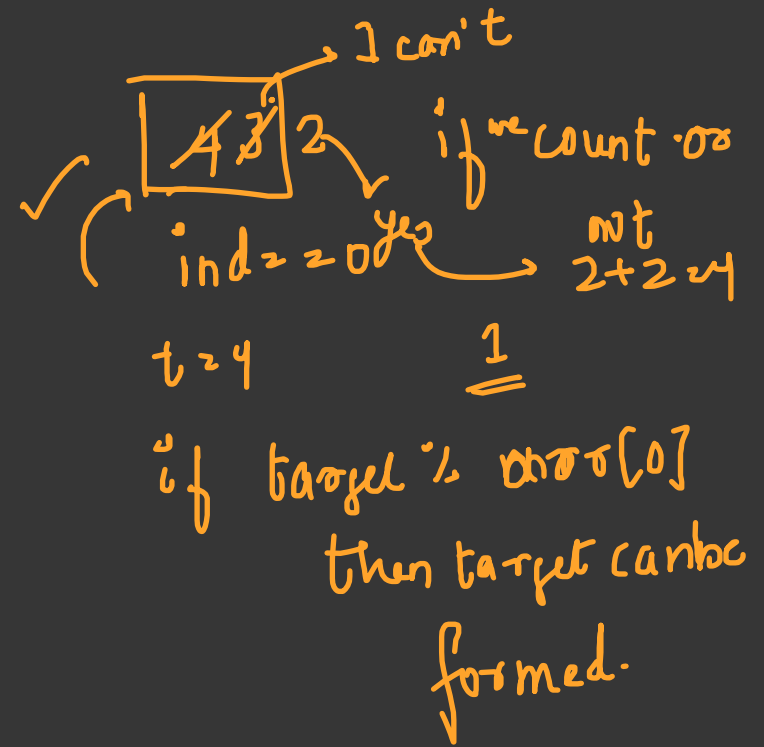 I can't
4 3 2
if we count or
not
yes
ind==0
2+2=4
t=4
1
if target % arr[0]
then target can be
formed.